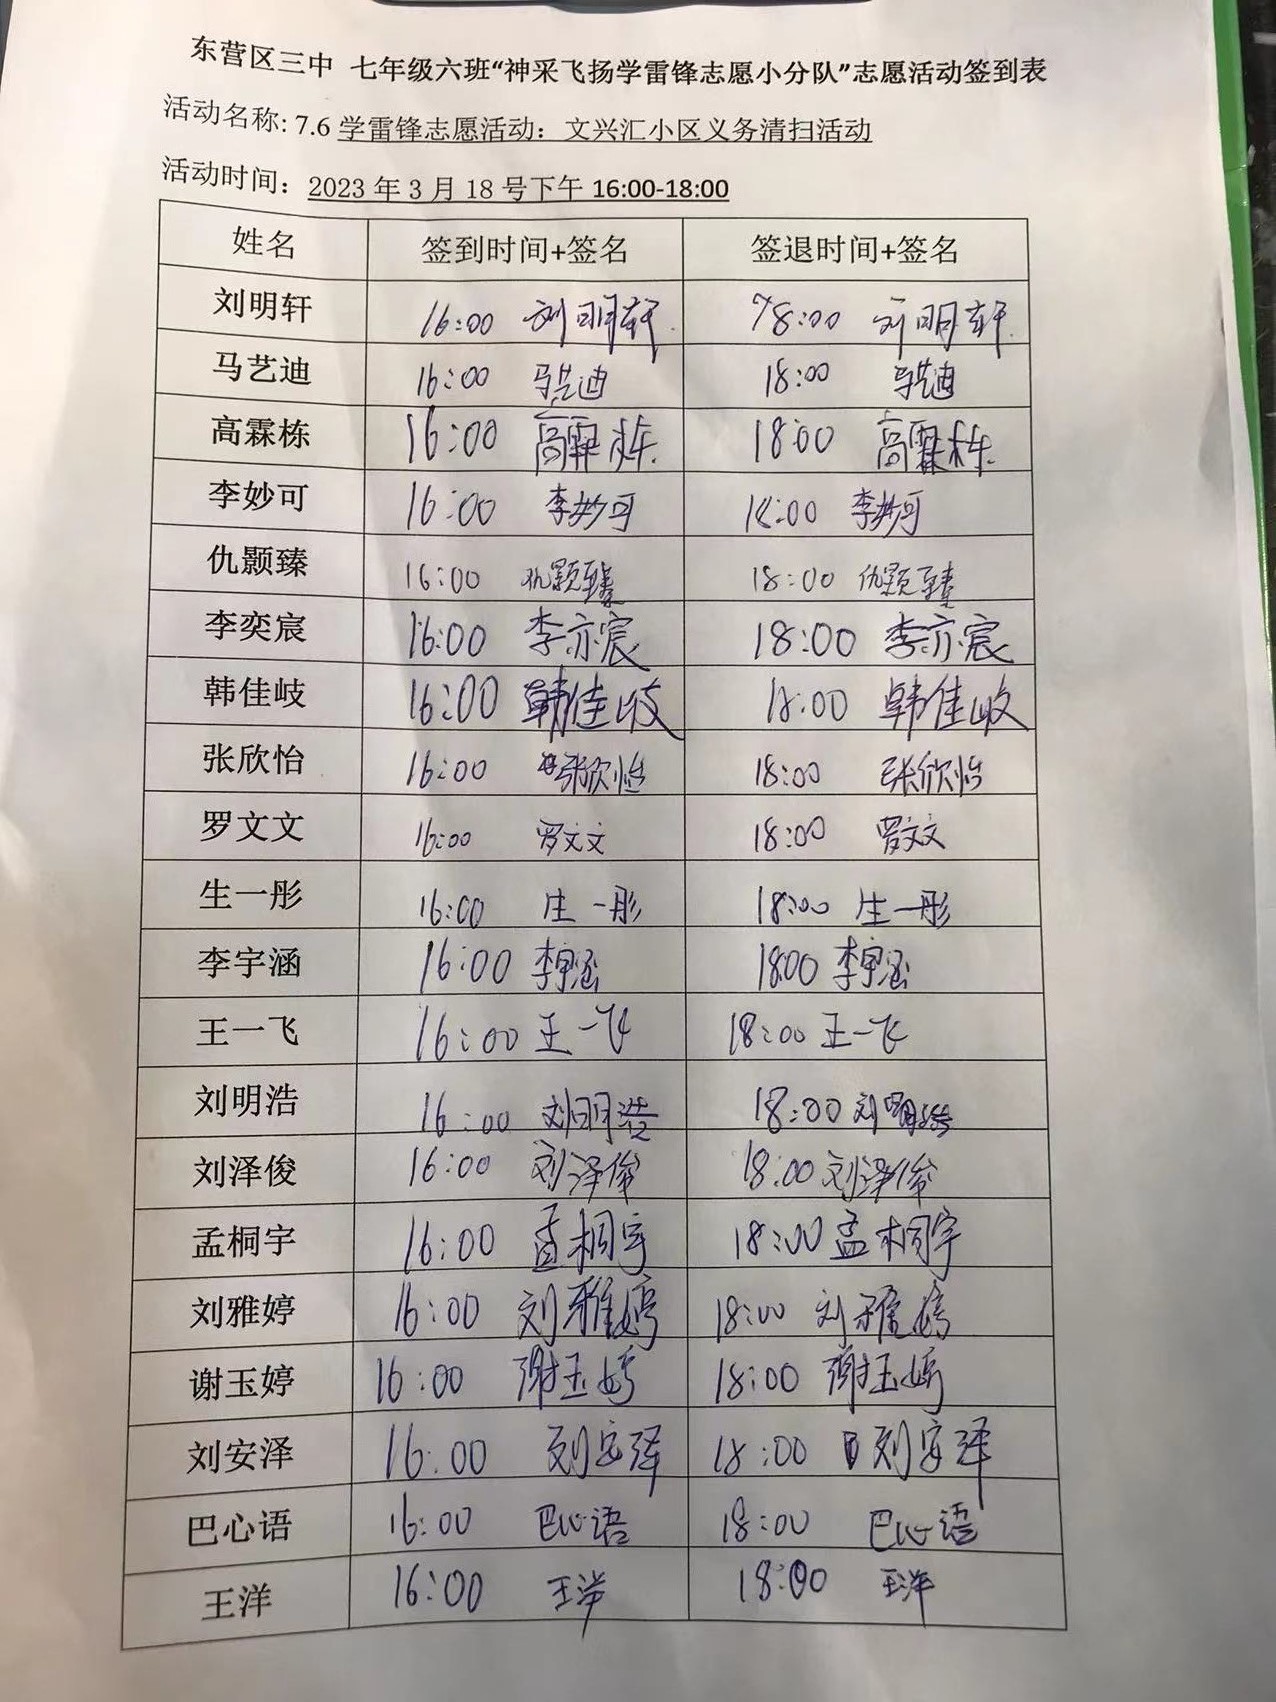 东营区三中 七年级六班“神采飞扬学雷锋志愿小分队”志愿活动签到表
活动名称: 7.6 学雷锋志愿活动：文兴汇小区义务清扫活动
活动时间：2023 年 3 月 18 号下午 16:00-18:00
姓名 签到时间+签名 签退时间+签名
刘明轩 16:00 刘明轩 18:00 刘明轩
马艺迪 16:00 马艺迪 18:00 马艺迪
高霖栋 16:00 高霖栋 18:00 高霖栋
李妙可 16:00 李妙可 18:00 李妙可
仇颢臻 16:00 仇颢臻 18:00 仇颢臻
李奕宸 16:00 李亦宸 18:00 李亦宸
韩佳岐 16:00 韩佳岐 18:00 韩佳岐
张欣怡 16:00 张欣怡 18:00 张欣怡
罗文文 16:00 罗文文 18:00 罗文文
生一彤 16:00 生一彤 18:00 生一彤
李宇涵 16:00 李宇涵 18:00 李宇涵
王一飞 16:00 王一飞 18:00 王一飞
刘明浩 16:00 刘明浩 18:00 刘明浩
刘泽俊 16:00 刘泽俊 18:00 刘泽俊
孟桐宇 16:00 孟桐宇 18:00 孟桐宇
刘雅婷 16:00 刘雅婷 18:00 刘雅婷
谢玉婷 16:00 谢玉婷 18:00 谢玉婷
刘安泽 16:00 刘安泽 18:00 刘安泽
巴心语 16:00 巴心语 18:00 巴心语
王洋 16:00 王洋 18:00 王洋